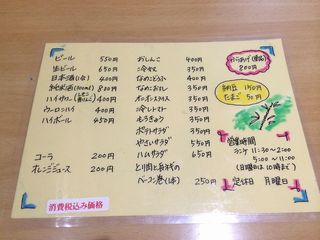 ビール 550円
生ビール 650円
日本酒(1合) 400円
純米酒(300ml) 800円
ハイサワー 400円
ウーロンハイ 400円
ハイボール 450円
コーラ 200円
オレンジジュース 200円
消費税込み価格
おしんこ 400円
冷やっこ 350円
なめこどうふ 400円
なめこおろし 350円
オニオンスライス 350円
冷しトマト 350円
もろきゅう 350円
ポテトサラダ 350円
やさいサラダ 350円
ハムサラダ 650円
ベーコン巻(1本) 250円
800円
納豆 150円
たまご 50円
営業時間
ランチ 11:30~2:00
5:00~11:00
(日曜日は10時まで)
定休日 月曜日